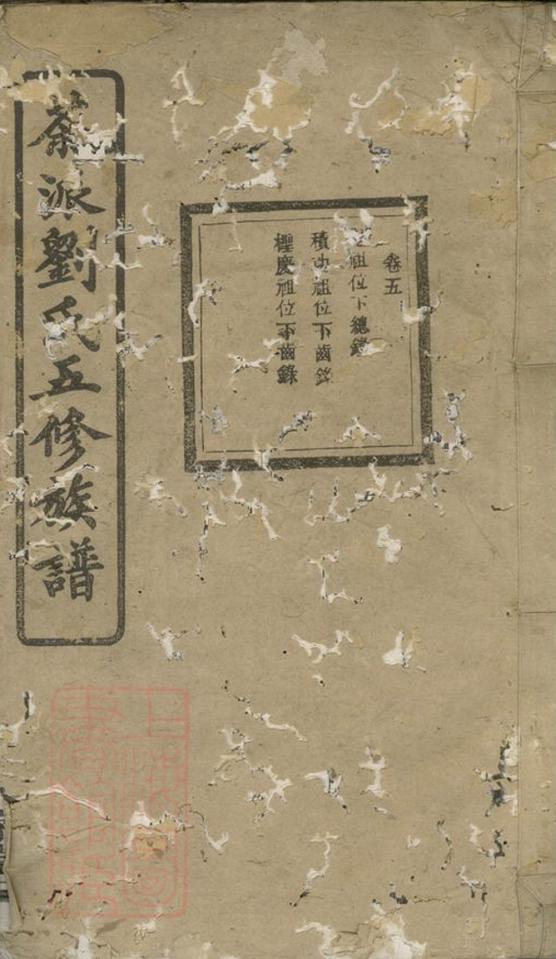 茶派劉氏五修族譜
卷五
祖位下總錄
積功祖位下齒錄
禋慶祖位下齒錄